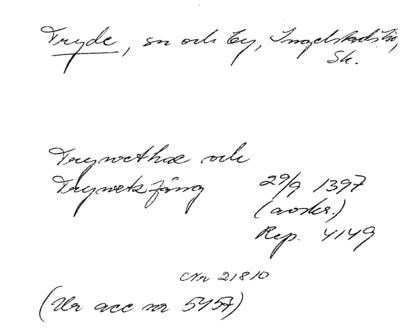 Tryde, sn och by, Ingelstads hd,
Sk.
Trywethæ och
Trywetzfäng 29/9 1397
(avskr.)
Rep. 4149
CNr 21810
(Ur acc nr 5457)